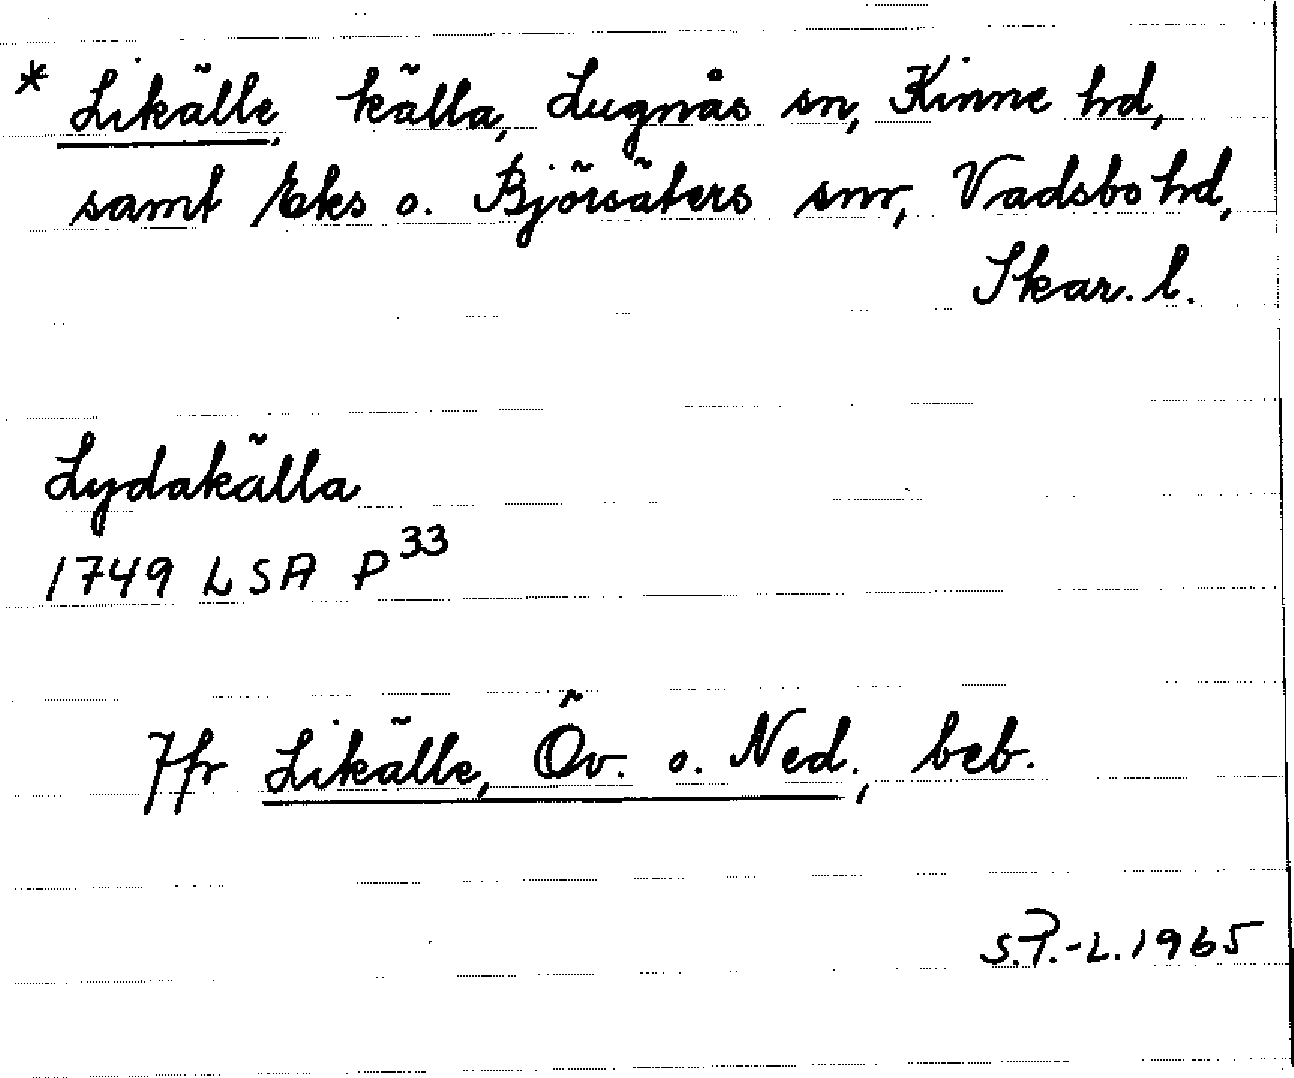 * Likälle, källa, Lugnås sn, Kinne hd,
samt Eks o. Björsäters snr, Vadsbo hd,
Skar. l.
Lydakälla
1749 LSA P 33
Jfr Likälle, Öv. o. Ned., beb.
S.P.-L. 1965